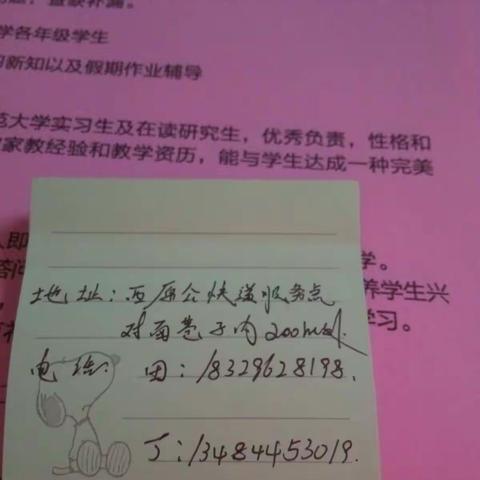 查缺补漏。
学各年级学生
习新知以及假期作业辅导
范大学实习生及在读研究生，优秀负责，性格和
家教经验和教学资历，能与学生达成一种完美
人即
学。
答问
养学生兴
学习。
地址：西屈仓快递服务点
对面巷子内200m处.
电话：田：18329628198.
丁：13484453019.